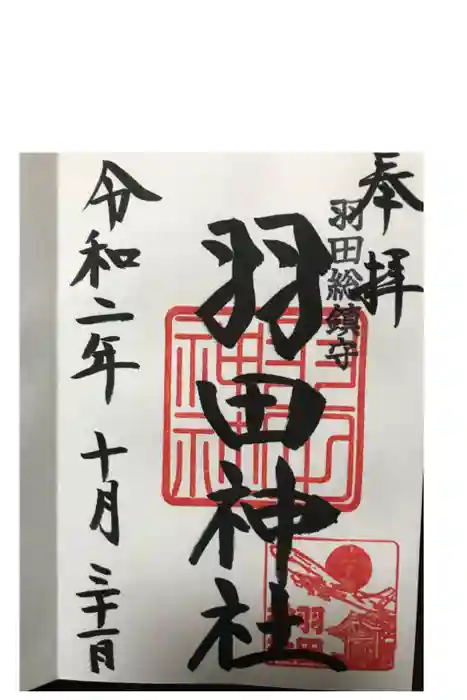 奉拝
羽田総鎮守
羽田神社
令和二年 十月 三十一日
羽田
神社
羽田